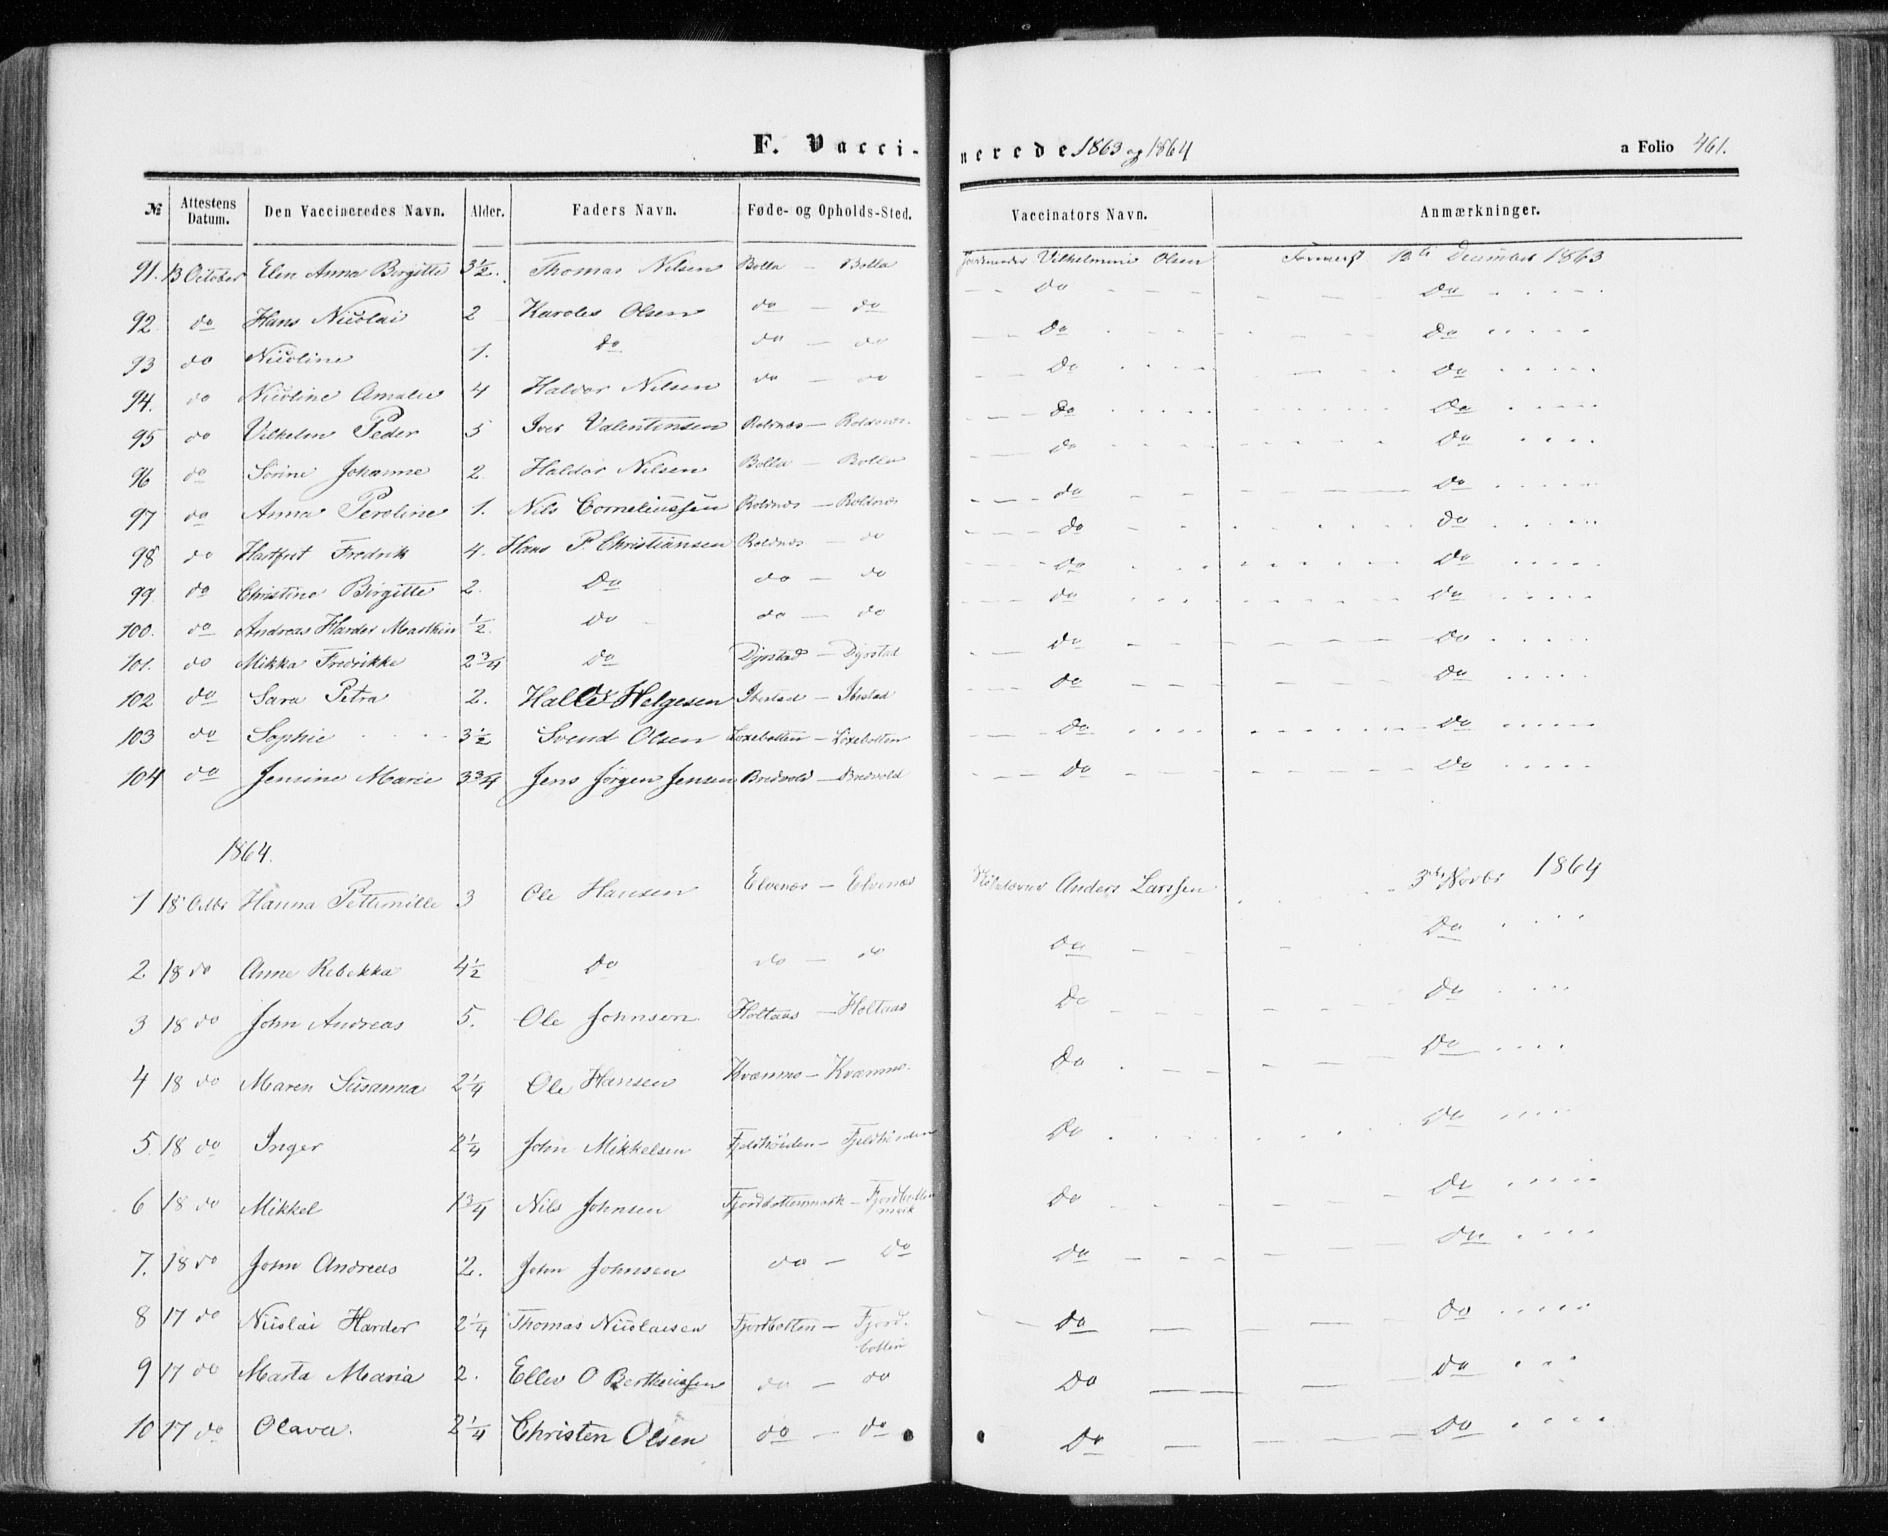 F. Vaccinerede 1863 og 1864 a Folio 461.
№ Attestens Datum. Den Vaccineredes Navn. Alder. Faders Navn. Føde- og Opholds-Sted. Vaccinators Navn. Anmærkninger.
91. 13 October Elen Anna Birgitte 3½. Thomas Nilsen Bolla - Bolla Jordmoder Vilhelmine Olsen 12te December 1863
92 do Hans Nicolai 2 Karoles Olsen do - do Do Do
93 do Nicoline 1. Do do - do Do Do
94. do Nicoline Amalie 4 Haldor Nilsen do - do Do Do
95 do Vilhelm Peder 5 Iver Valentinsen Roldnæs - Roldnæs Do Do
96 do Sørine Johanne 2. Haldor Nilsen Bolla - Bolla Do Do
97 do Anna Peroline 1. Nils Corneliussen Roldnæs - Roldnæs Do Do
98 do Hartfret Fredrik 4. Hans P. Christiansen Roldnæs - do Do Do
99 do Christine Birgitte 2. Do do - do Do Do
100. do Andreas Harder Marthin ½. do do - do Do Do
101. do Mikka Fredrikke 2¾ do Dyrstad - Dyrstad Do Do
102 do Sara Petra 2. Halder Helgesen Ibestad - Ibestad Do Do
103 do Sophie 3½ Svend Olsen Løxebotten - Løxebotten Do Do
104 do Jensine Marie 3¾ Jens Jørgen Jensen Bredvold - Bredvold Do Do
1864.
1 18 Octbr Hanna Pettenille 3 Ole Hansen Elvenæs - Elvenæs Anders Larssen 3die Novbr 1864
2 18 do Anne Rebekka 4½ Do do - do Do Do
3 18 do John Andreas 5. Ole Johnsen Holtaas - Holtaas Do Do
4 18 do Maren Susanna 2¼ Ole Hansen Kvæmmo - Kvæmmo. Do Do
5. 18 do Inger 2¼ John Mikkelsen Fjeldhøiden - Fjeldhøiden Do Do
6 18 do Mikkel 1¾ Nils Johnsen Fjordbottenmark - Fjordbotten
mark Do Do
7. 18 do John Andreas 2. John Johnsen do - Do Do Do
8 17 do Nicolai Harder 2¼ Thomas Nicolaisen Fjordbotten - Fjord-
botten Do Do
9 17 do Marta Maria 2. Ellev O Bertheussen do - do Do Do
10 17 do Olava. 2¼ Christen Olsen do - do Do Do